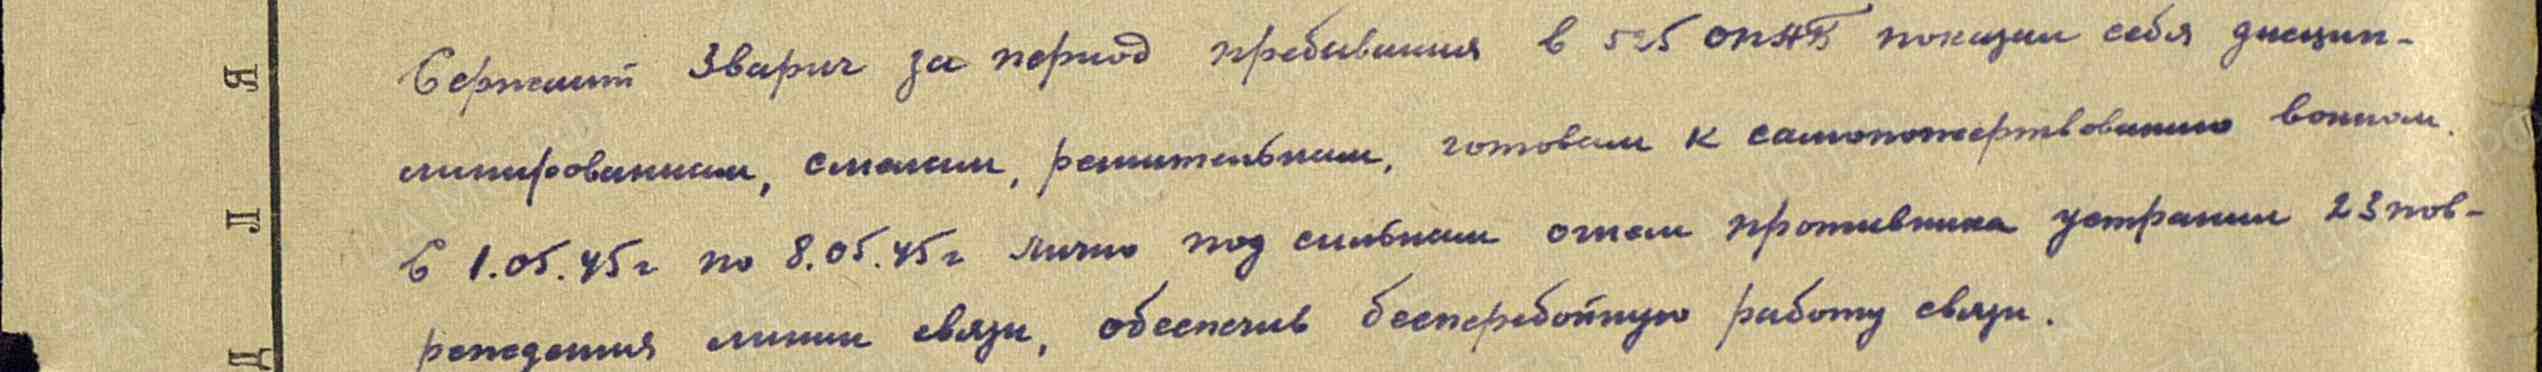 Сержант Зварич за период пребывания в 525 показал себя дисцип-
линированным, смелым, решительным, готовым к самопожертвованию воином.
С 1.05.45г по 8.05.45г лично под сильным огнем противника устранил 23 пов-
реждения линии связи, обеспечив бесперебойную работу связи.
Я
Л
Д